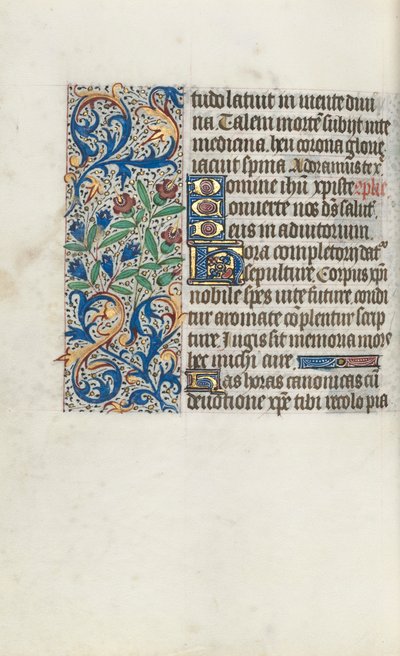 tudo latuit in mente diui
na Talem morte͂ subyt vite
medicina. heu corona glorie
iacuit spina Adoramus te x
Domine ihu xpiste
Conuerte nos ds͂ salut
Deus in adiutorium.
Hora completorij dat͛
sepulture Corpus xp͂i
nobile spes vite future condi
tur aromate co͂plentur scrip
ture Iugis sit memoria mors
hec michi cure.
Has horas canonicas cu͂
deuotione xp͂e tibi recolo pia